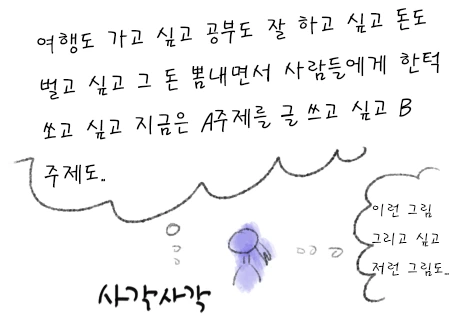 여행도 가고 싶고 공부도 잘 하고 싶고 돈도
벌고 싶고 그 돈 뽐내면서 사람들에게 한턱
쏘고 싶고 지금은 A주제를 글 쓰고 싶고 B
주제도..
이런 그림
그리고 싶고
저런 그림도..
사각사각